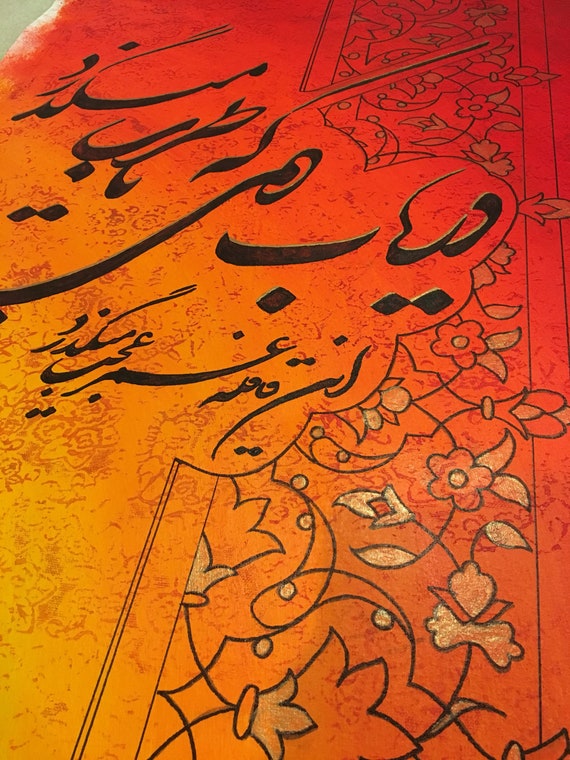 دریاب دمی که با طرب میگذرد
این قافله عمر عجب میگذرد